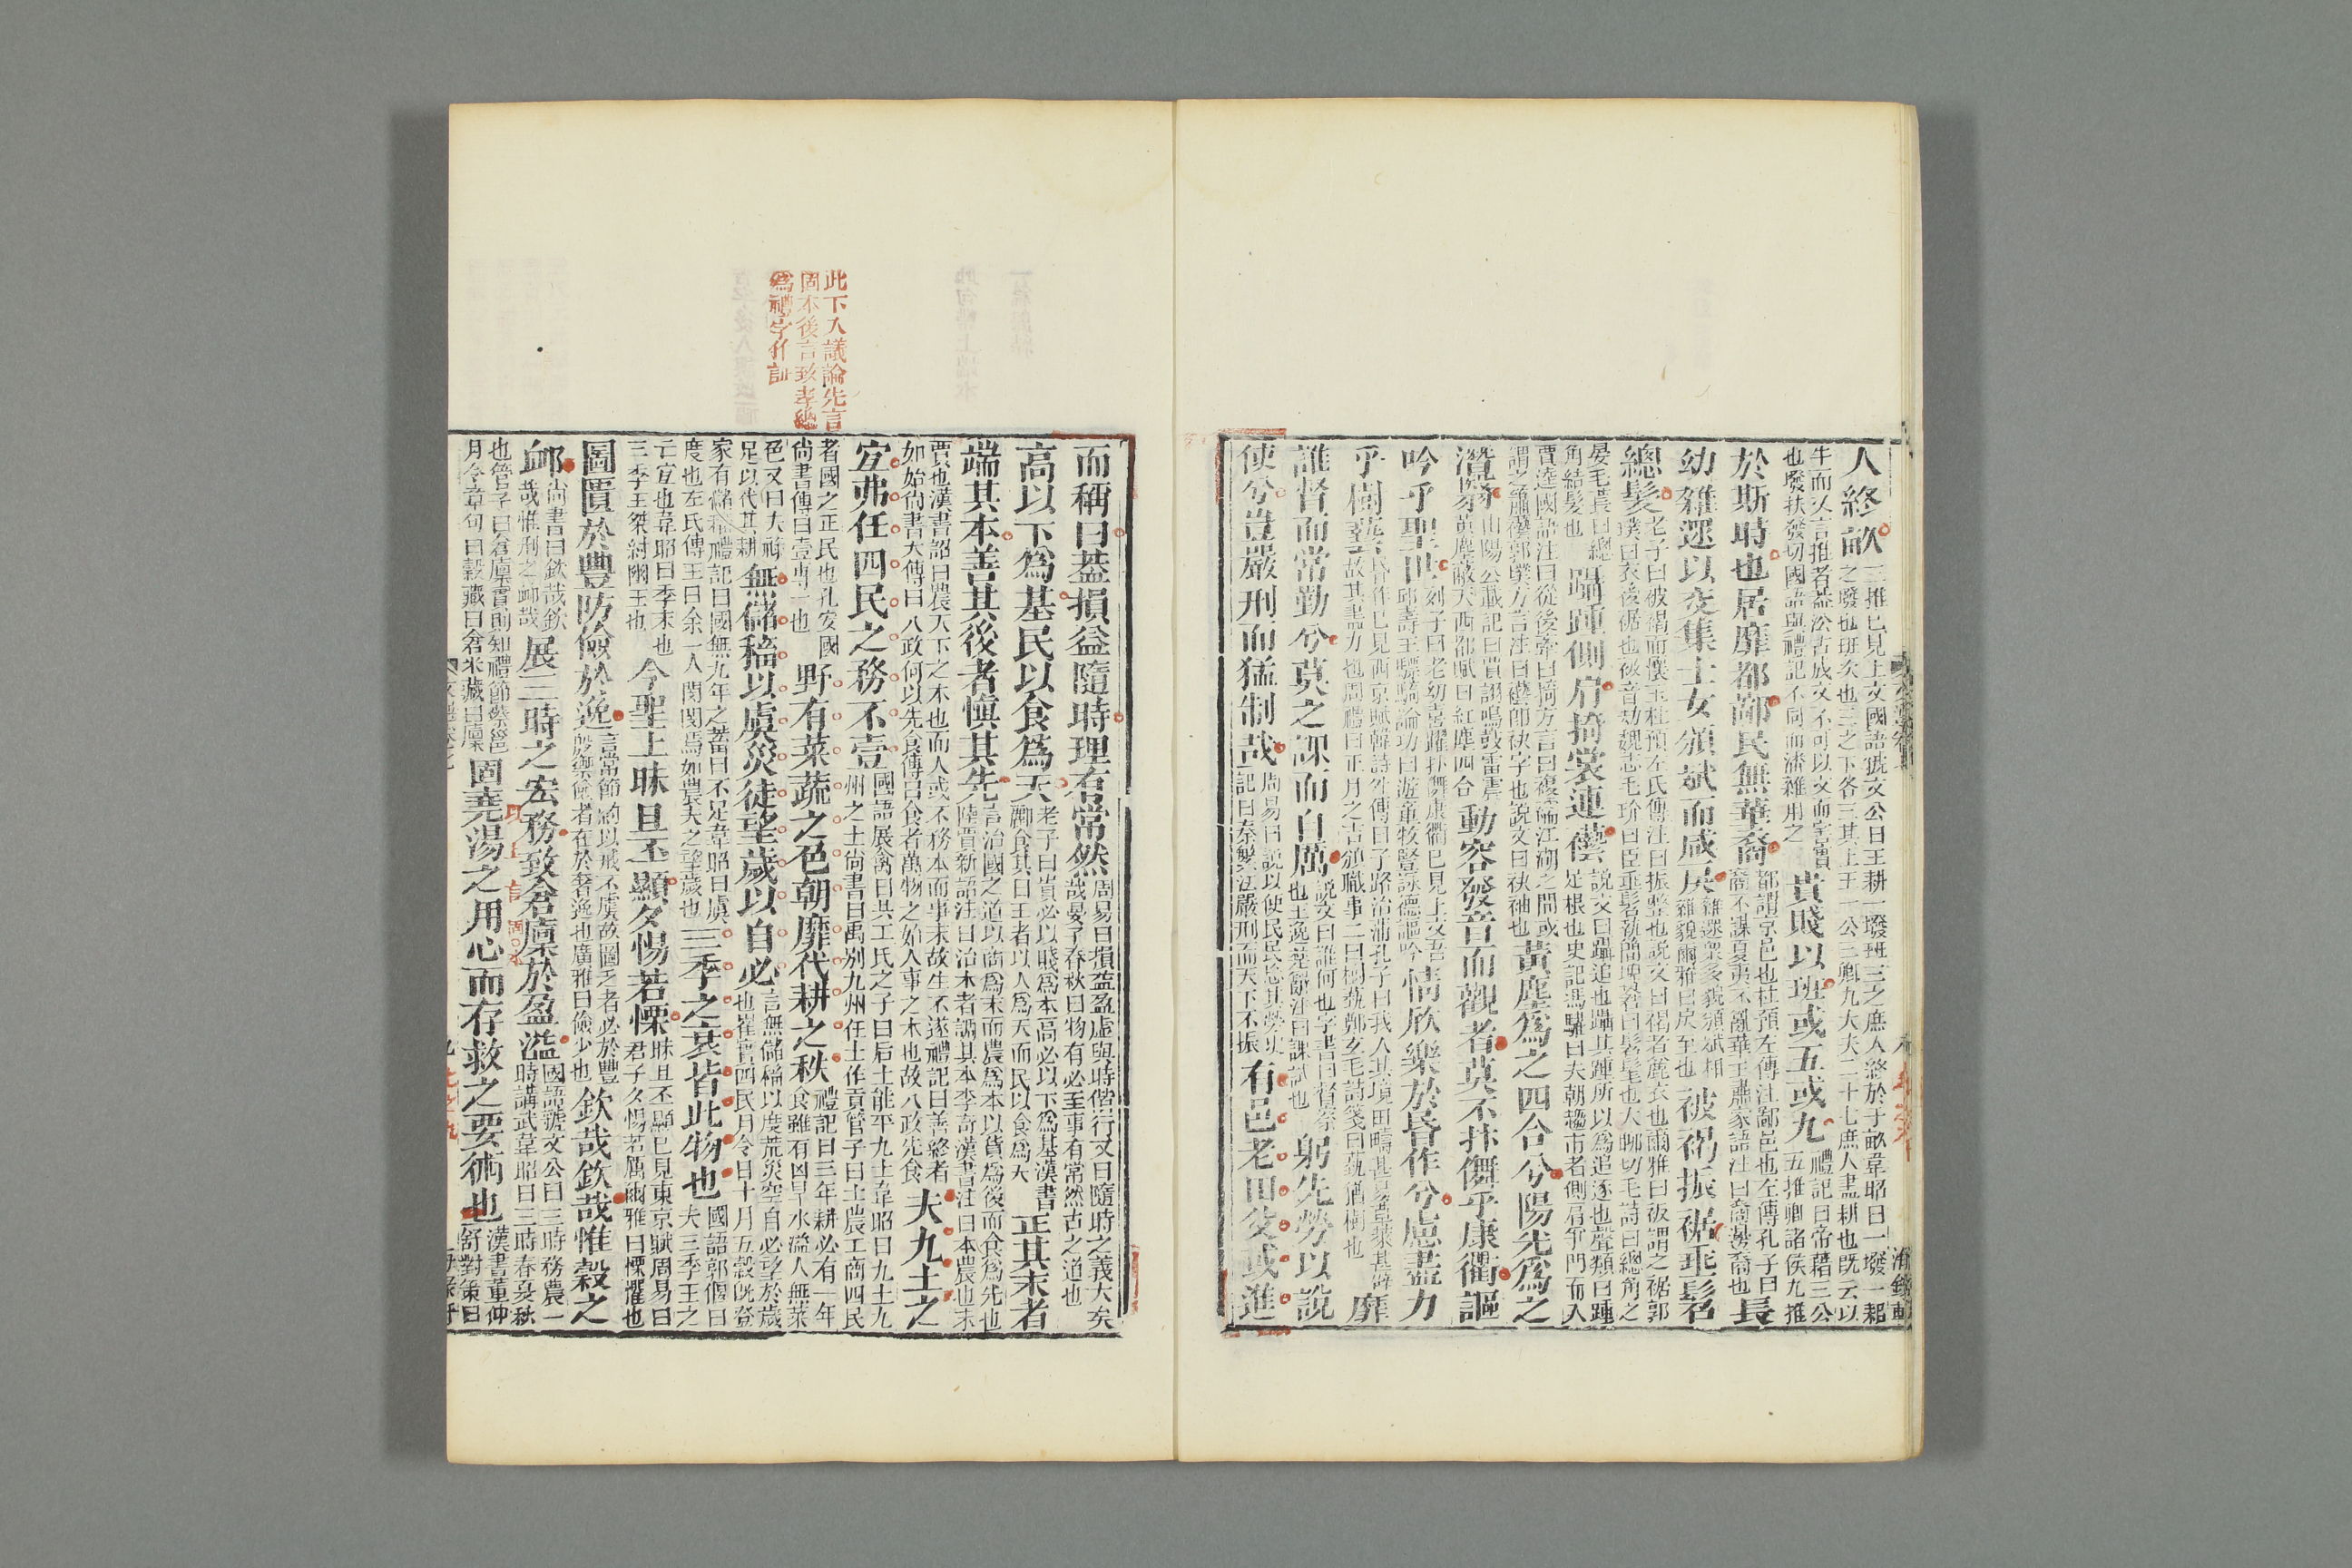 人終畝三推已見上文國語虢文公曰王耕一墢班三之庶人終於千畝韋昭曰一墢一耜
之墢也班次也三之下各三其上王一公三卿九大夫二十七庶人盡耕也旣云以
牛而又言推者蓋沿古成文不可以文而害實
也墢扶發切國語與禮記不同而潘雜用之貴賤以班或五或九禮記曰帝藉三公
五推卿諸侯九推
於斯時也居靡都鄙民無華裔都謂京邑也杜預左傳注鄙邑也左傳孔子曰
裔不謀夏夷不亂華王肅家語注曰裔邊裔也長
幼雜遝以交集士女頒斌而咸戾雜遝眾多貌頒斌相
雜貌爾雅曰戾至也被褐振裾垂髫
總髮老子曰被褐而懷玉杜預左氏傳注曰振整也說文曰褐者麄衣也爾雅曰衱謂之裾郭
璞曰衣後裾也衱音劫魏志毛玠曰臣垂髫執簡埤蒼曰髫髦也大聊切毛詩曰總角之
晏毛萇曰總
角結髮也躡踵側肩掎裳連襼說文曰躡追也躡其踵所以為追逐也聲類曰踵
足根也史記馮驩曰夫朝趨市者側肩爭門而入
賈逵國語注曰從後牽曰掎方言曰複襦江湖之間或
謂之筩襼郭璞方言注曰襼卽袂字也說文曰袂袖也黃塵為之四合兮陽光為之
潛翳山陽公載記曰賈詡鳴鼓雷震
黃塵蔽天西都賦曰紅塵四合動容發音而觀者莫不抃儛乎康衢謳
吟乎聖世列子曰老幼喜躍抃儛康衢已見上文吾
邱壽王驃騎論功曰遊童牧豎詠德謳吟情欣樂於昏作兮慮盡力
乎樹蓺昏作已見西京賦韓詩外傳曰子路治蒲孔子曰我入其境田疇甚易草萊甚辟
故其盡力也周禮曰正月之吉頒職事二曰樹蓺鄭玄毛詩箋曰蓺猶樹也靡
誰督而常勤兮莫之課而自厲說文曰誰何也字書曰督察
也王逸楚辭注曰課試也躬先勞以說
使兮豈嚴刑而猛制哉周易曰說以使民民忘其勞史
記曰秦繁法嚴刑而天下不振有邑老田父或進
而稱曰蓋損益隨時理有常然周易曰損益盈虛與時偕行又曰隨時之義大矣
哉晏子春秋曰物有必至事有常然古之道也
高以下為基民以食為天老子曰貴必以賤為本高必以下為基漢書
酈食其曰王者以人為天而民以食為天正其末者
端其本善其後者慎其先言治國之道以商為末而農為本以貨為後而食為先也
陸賈新語注曰治末者調其本李奇漢書注曰本農也末
賈也漢書詔曰農天下之本也而人或不務本而事末故生不遂禮記曰善終者
如始尙書大傳曰八政何以先食傳曰食者萬物之始人事之本也故八政先食夫九土之
宜弗任四民之務不壹國語展禽曰共工氏之子曰后土能平九土韋昭曰九土九
州之土尙書曰禹別九州任土作貢管子曰士農工商四民
者國之正民也孔安國
尙書傳曰壹專一也野有菜蔬之色朝靡代耕之秩禮記曰三年耕必有一年
食雖有凶旱水溢人無菜
色又曰夫祿
足以代其耕無儲稸以虞災徒望歲以自必言無儲稸以度荒災空自必望於歲
也崔寔四民月令曰十月五穀旣登
家有儲稸禮記曰國無九年之蓄曰不足韋昭曰虞
度也左氏傳王曰余一人閔閔焉如農夫之望歲也三季之衰皆此物也國語郭偃曰
夫三季王之
亡宜也韋昭曰季末也
三季王桀紂幽王也今聖上昧旦丕顯夕惕若慄昧旦丕顯已見東京賦周易曰
君子夕惕若厲爾雅曰慄懼也
圖匱於豐防儉於逸言常節約以戒不虞故圖乏者必於豐
殷禦儉者在於奢逸也廣雅曰儉少也欽哉欽哉惟穀之
卹尙書曰欽哉欽
哉惟刑之卹哉展三時之宏務致倉廩於盈溢國語虢文公曰三時務農一
時講武韋昭曰三時春夏秋
也管子曰倉廩實則知禮節蔡邕
月令章句曰穀藏曰倉米藏曰廩固堯湯之用心而存救之要術也漢書董仲
舒對策曰
此下入議論先言
固本後言致孝總
為禮字作訓
以上言固本